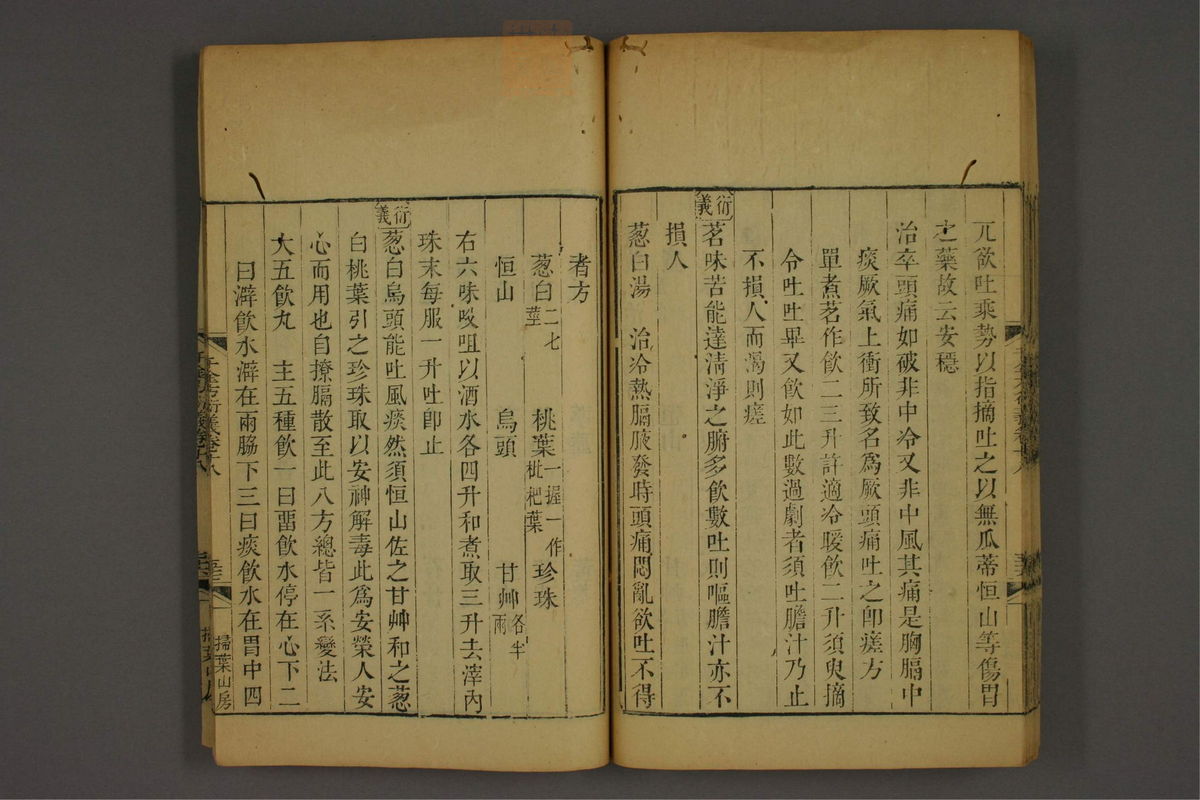 兀欲吐乘勢以指摘吐之以無瓜蒂恒山等傷胃
之藥故云安穩
治卒頭痛如破非中冷又非中風其痛是胸膈中
痰厥氣上衝所致名為厥頭痛吐之卽瘥方
單煮茗作飲二三升許適冷暖飲二升須臾摘
令吐吐畢又飲如此數過劇者須吐膽汁乃止
不損人而渴則瘥
衍義
茗味苦能達淸淨之腑多飲數吐則嘔膽汁亦不
損人
葱白湯 治冷熱膈胲發時頭痛悶亂欲吐不得
者方
葱白二七莖 桃葉一握一作枇杷葉 珍珠
恒山 烏頭 甘艸各半兩
右六味㕮咀以酒水各四升和煮取三升去滓內
珠末每服一升吐卽止
衍義
葱白烏頭能吐風痰然須恒山佐之甘艸和之葱
白桃葉引之珍珠取以安神解毒此爲安榮人安
心而用也自撩膈散至此八方總皆一系變法
大五飲丸 主五種飲一曰畱飲水停在心下二
曰澼飲水澼在兩脇下三曰痰飲水在胃中四
千金方衍義卷十八
掃葉山房